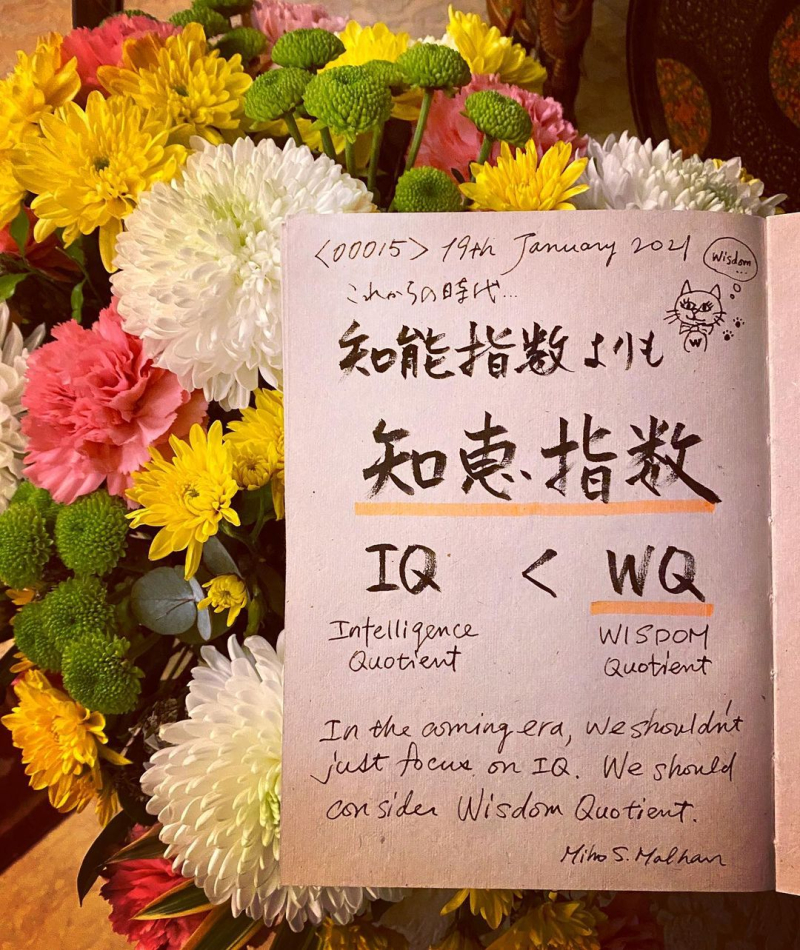 <00015> 19th January 2021
Wisdom...
これからの時代...
W
知能指数よりも
知恵指数
IQ < WQ
Intelligence WISDOM
Quotient Quotient
In the coming era, we shouldn't
just focus on IQ. We should
consider Wisdom Quotient.
Miho S. Malhan